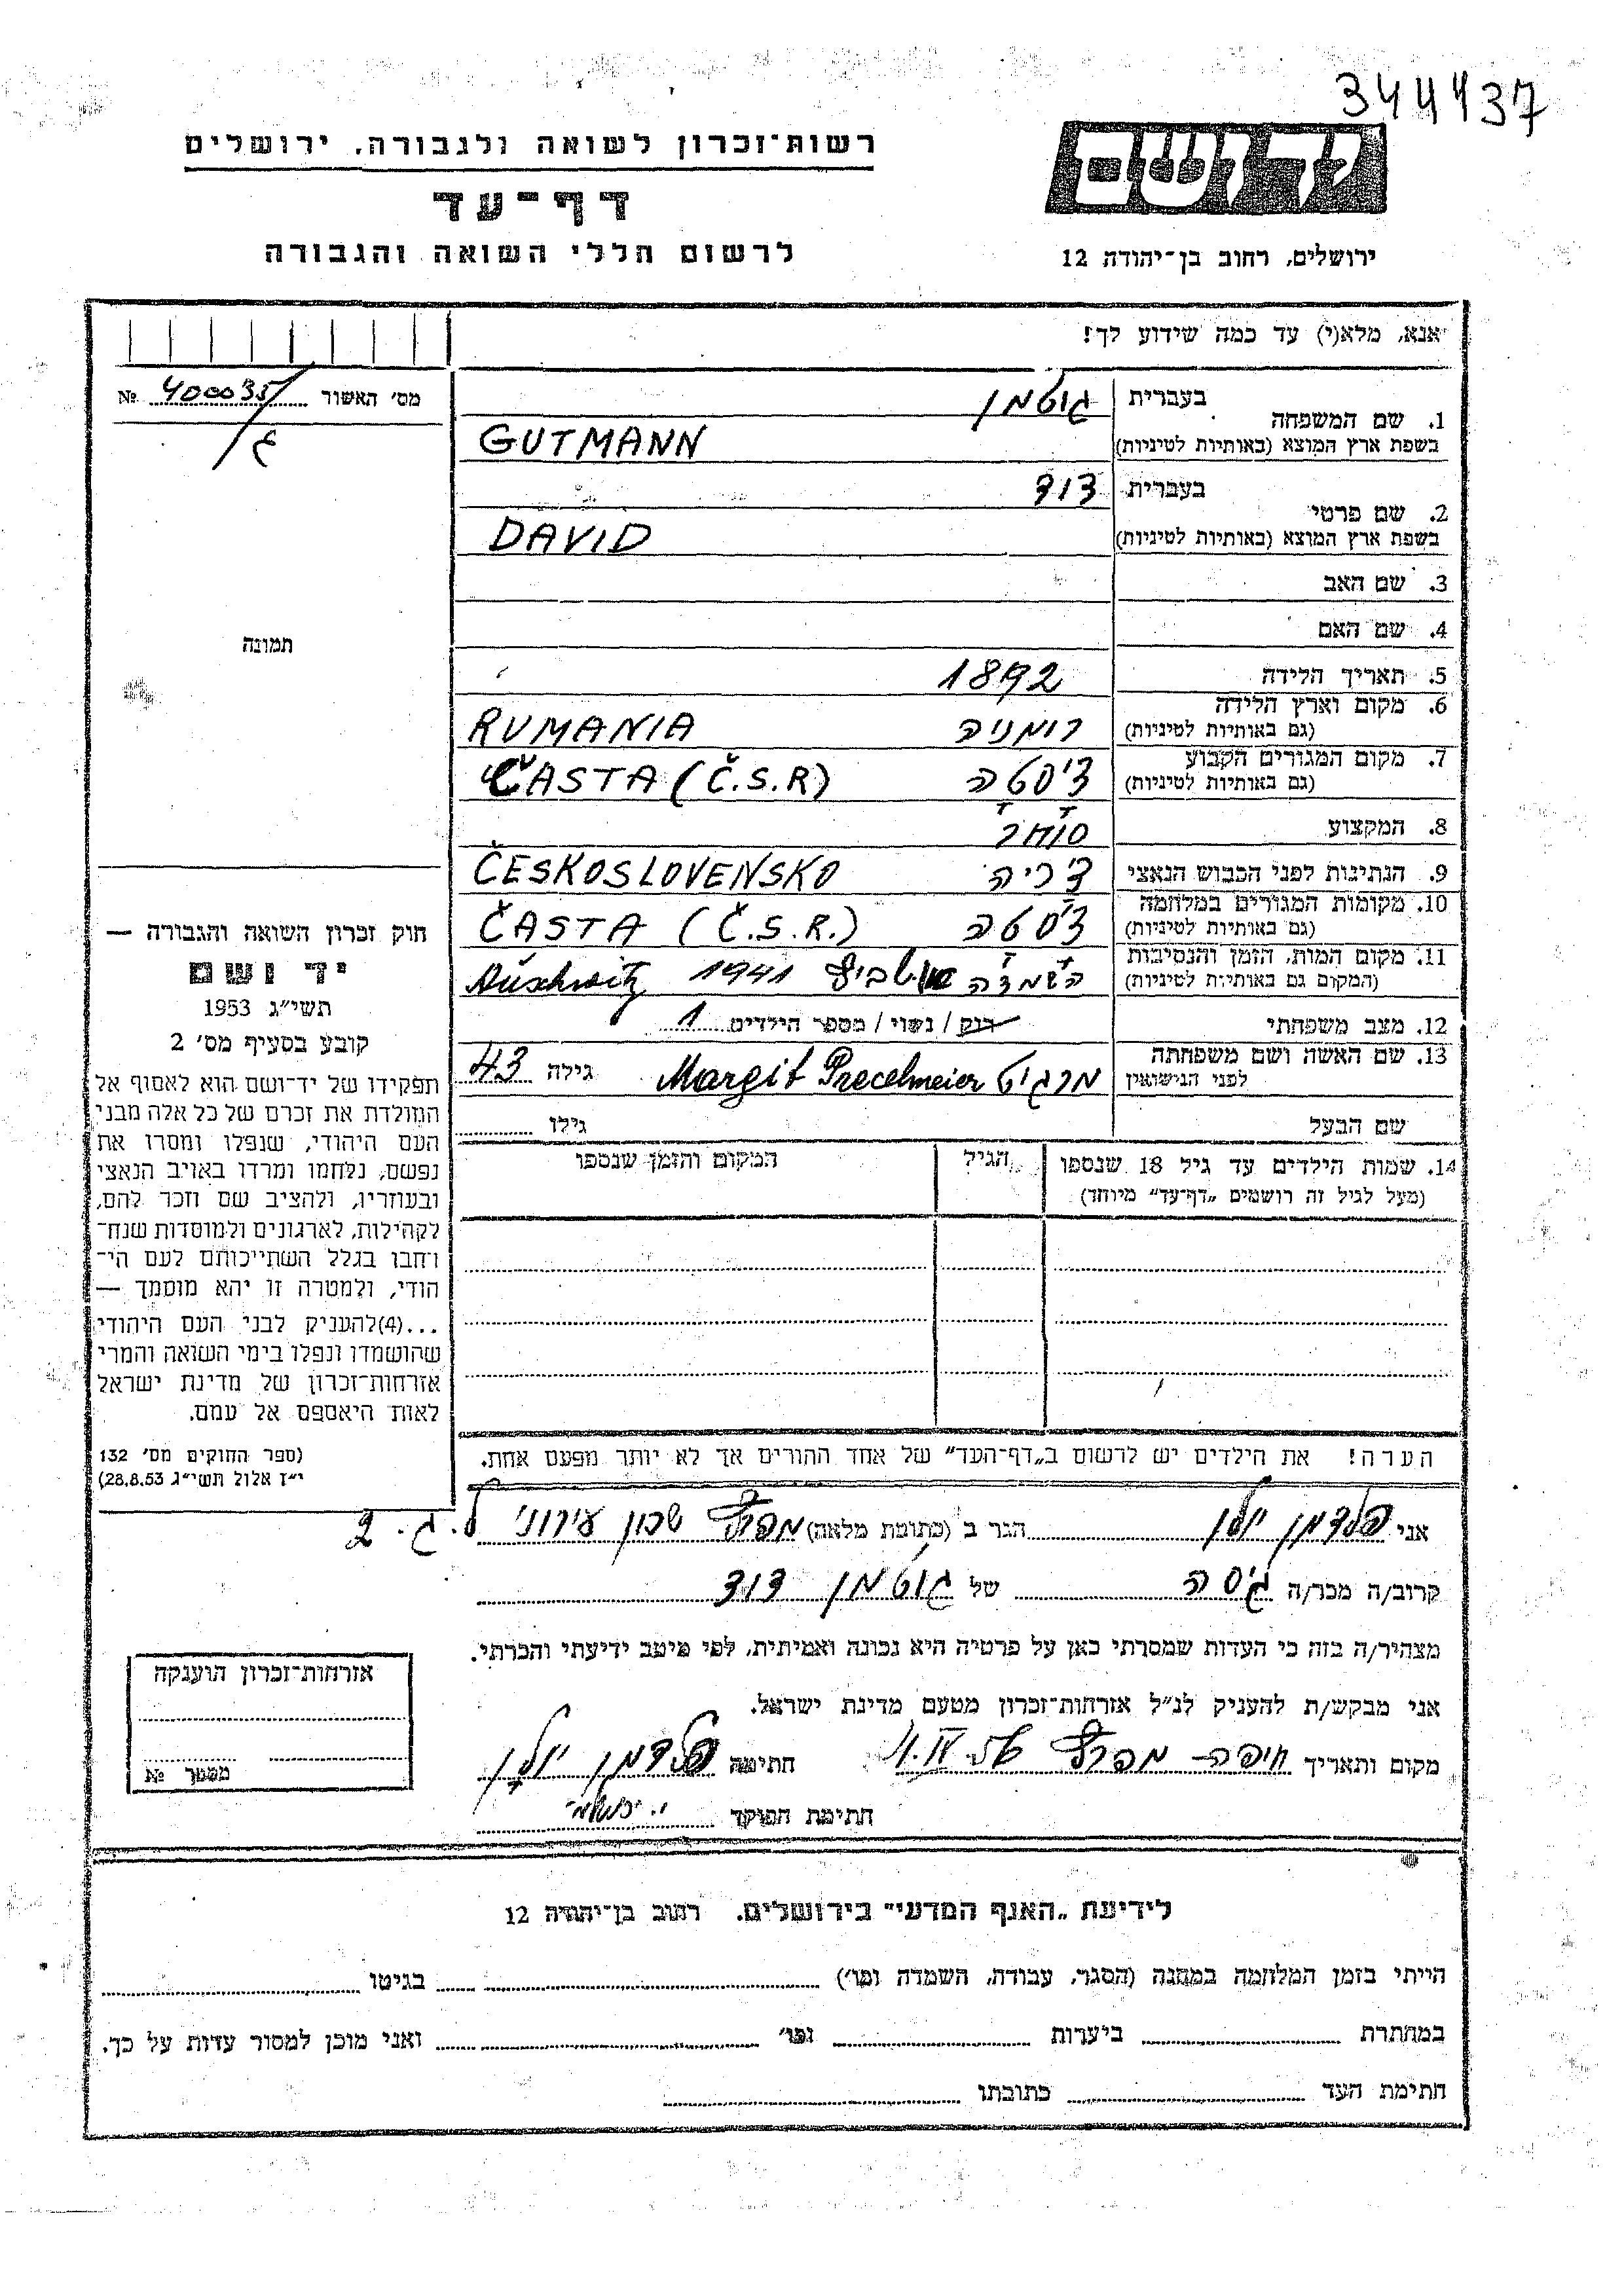 344437
רשות־זכרון לשואה ולגבורה, ירושלים
ידושם
דף־עד
לרשום חללי השואה והגבורה
ירושלים, רחוב בן־יהודה 12
אנא, מלא(י) עד כמה שידוע לך!
מס׳ האשור 400035 №
1. שם המשפחה בעברית גוטמן
בשפת ארץ המוצא (באותיות לטיניות) GUTMANN
2. שם פרטי בעברית דוד
בשפת ארץ המוצא (באותיות לטיניות) DAVID
3. שם האב
4. שם האם
תמונה
5. תאריך הלידה 1892
6. מקום וארץ הלידה
(גם באותיות לטיניות) רומניה RUMANIA
7. מקום המגורים הקבוע
(גם באותיות לטיניות) צ׳סטה ČASTA (Č.S.R)
8. המקצוע סוחר
9. הנתינות לפני הכבוש הנאצי צ׳כיה ČESKOSLOVENSKO
10. מקומות המגורים במלחמה
(גם באותיות לטיניות) צ׳סטה ČASTA (Č.S.R.)
11. מקום המות, הזמן והנסיבות
(המקום גם באותיות לטיניות) השמדה 1941 Auschwitz
12. מצב משפחתי רוק / נשוי / מספר הילדים 1
13. שם האשה ושם משפחתה
לפני הנישואין מרגיט Margit Precelmeier גילה 43
שם הבעל גילו
14. שמות הילדים עד גיל 18 שנספו הגיל המקום והזמן שנספו
(מעל לגיל זה רושמים „דף־עד״ מיוחד)
הערה! את הילדים יש לרשום ב„דף־העד״ של אחד ההורים אך לא יותר מפעם אחת.
חוק זכרון השואה והגבורה —
יד ושם
תשי״ג 1953
קובע בסעיף מס׳ 2
תפקידו של יד־ושם הוא לאסוף אל
המולדת את זכרם של כל אלה מבני
העם היהודי, שנפלו ומסרו את
נפשם, נלחמו ומרדו באויב הנאצי
ובעוזריו, ולהציב שם וזכר להם,
לקהילות, לארגונים ולמוסדות שנח־
רחבו בגלל השתייכותם לעם הי־
הודי, ולמטרה זו יהא מוסמך —
...(4)להעניק לבני העם היהודי
שהושמדו ונפלו בימי השואה והמרי
אזרחות־זכרון של מדינת ישראל
לאות היאספם אל עמם.
(ספר החוקים מס׳ 132
י״ז אלול תשי״ג 28.8.53)
אני פלדמן הגר ב (כתובת מלאה) שכון עירוני ל.ג. 2
קרוב/ה מכר/ה גיסה של גוטמן דוד
מצהיר/ה בזה כי העדות שמסרתי כאן על פרטיה היא נכונה ואמיתית, לפי מיטב ידיעתי והכרתי.
אני מבקש/ת להעניק לנ״ל אזרחות־זכרון מטעם מדינת ישראל.
מקום ותאריך חיפה חתימה פלדמן
חתימת הפוקד
אזרחות־זכרון הוענקה
מספר №
לידיעת „האגף המדעי״ בירושלים. רחוב בן־יהודה 12
הייתי בזמן המלחמה במחנה (הסגר, עבודה, השמדה וכו׳) בגיטו
במחתרת ביערות וכו׳ ואני מוכן למסור עדות על כך.
חתימת העד כתובתו